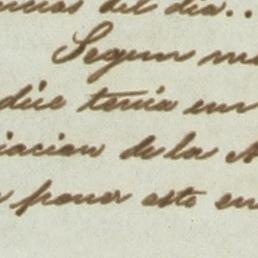 ncias del dia..
Segun me
dice tenia em
iacion de la A
poner este en